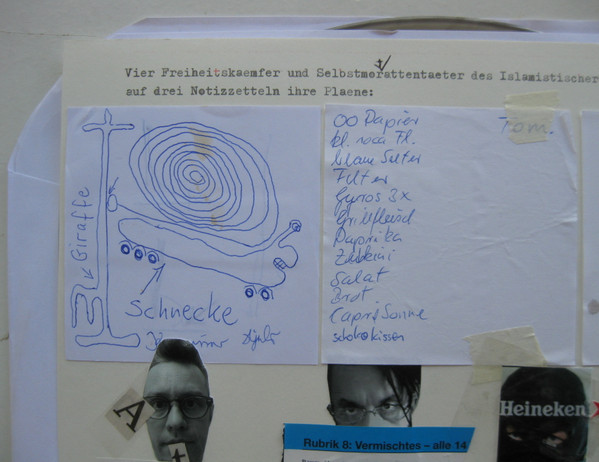 Vier Freiheitskaemfer und Selbstmorattentaeter des Islamistischer
t/
auf drei Notizzetteln ihre Plaene:
Giraffe
Schnecke
OO Papier
Tom.
blaue Filter
Gyros 3x
Grillfleisch
Paprika
Zukkini
Salat
Brot
Capri Sonne
Schokokissen
A
t
Heineken
Rubrik 8: Vermischtes – alle 14